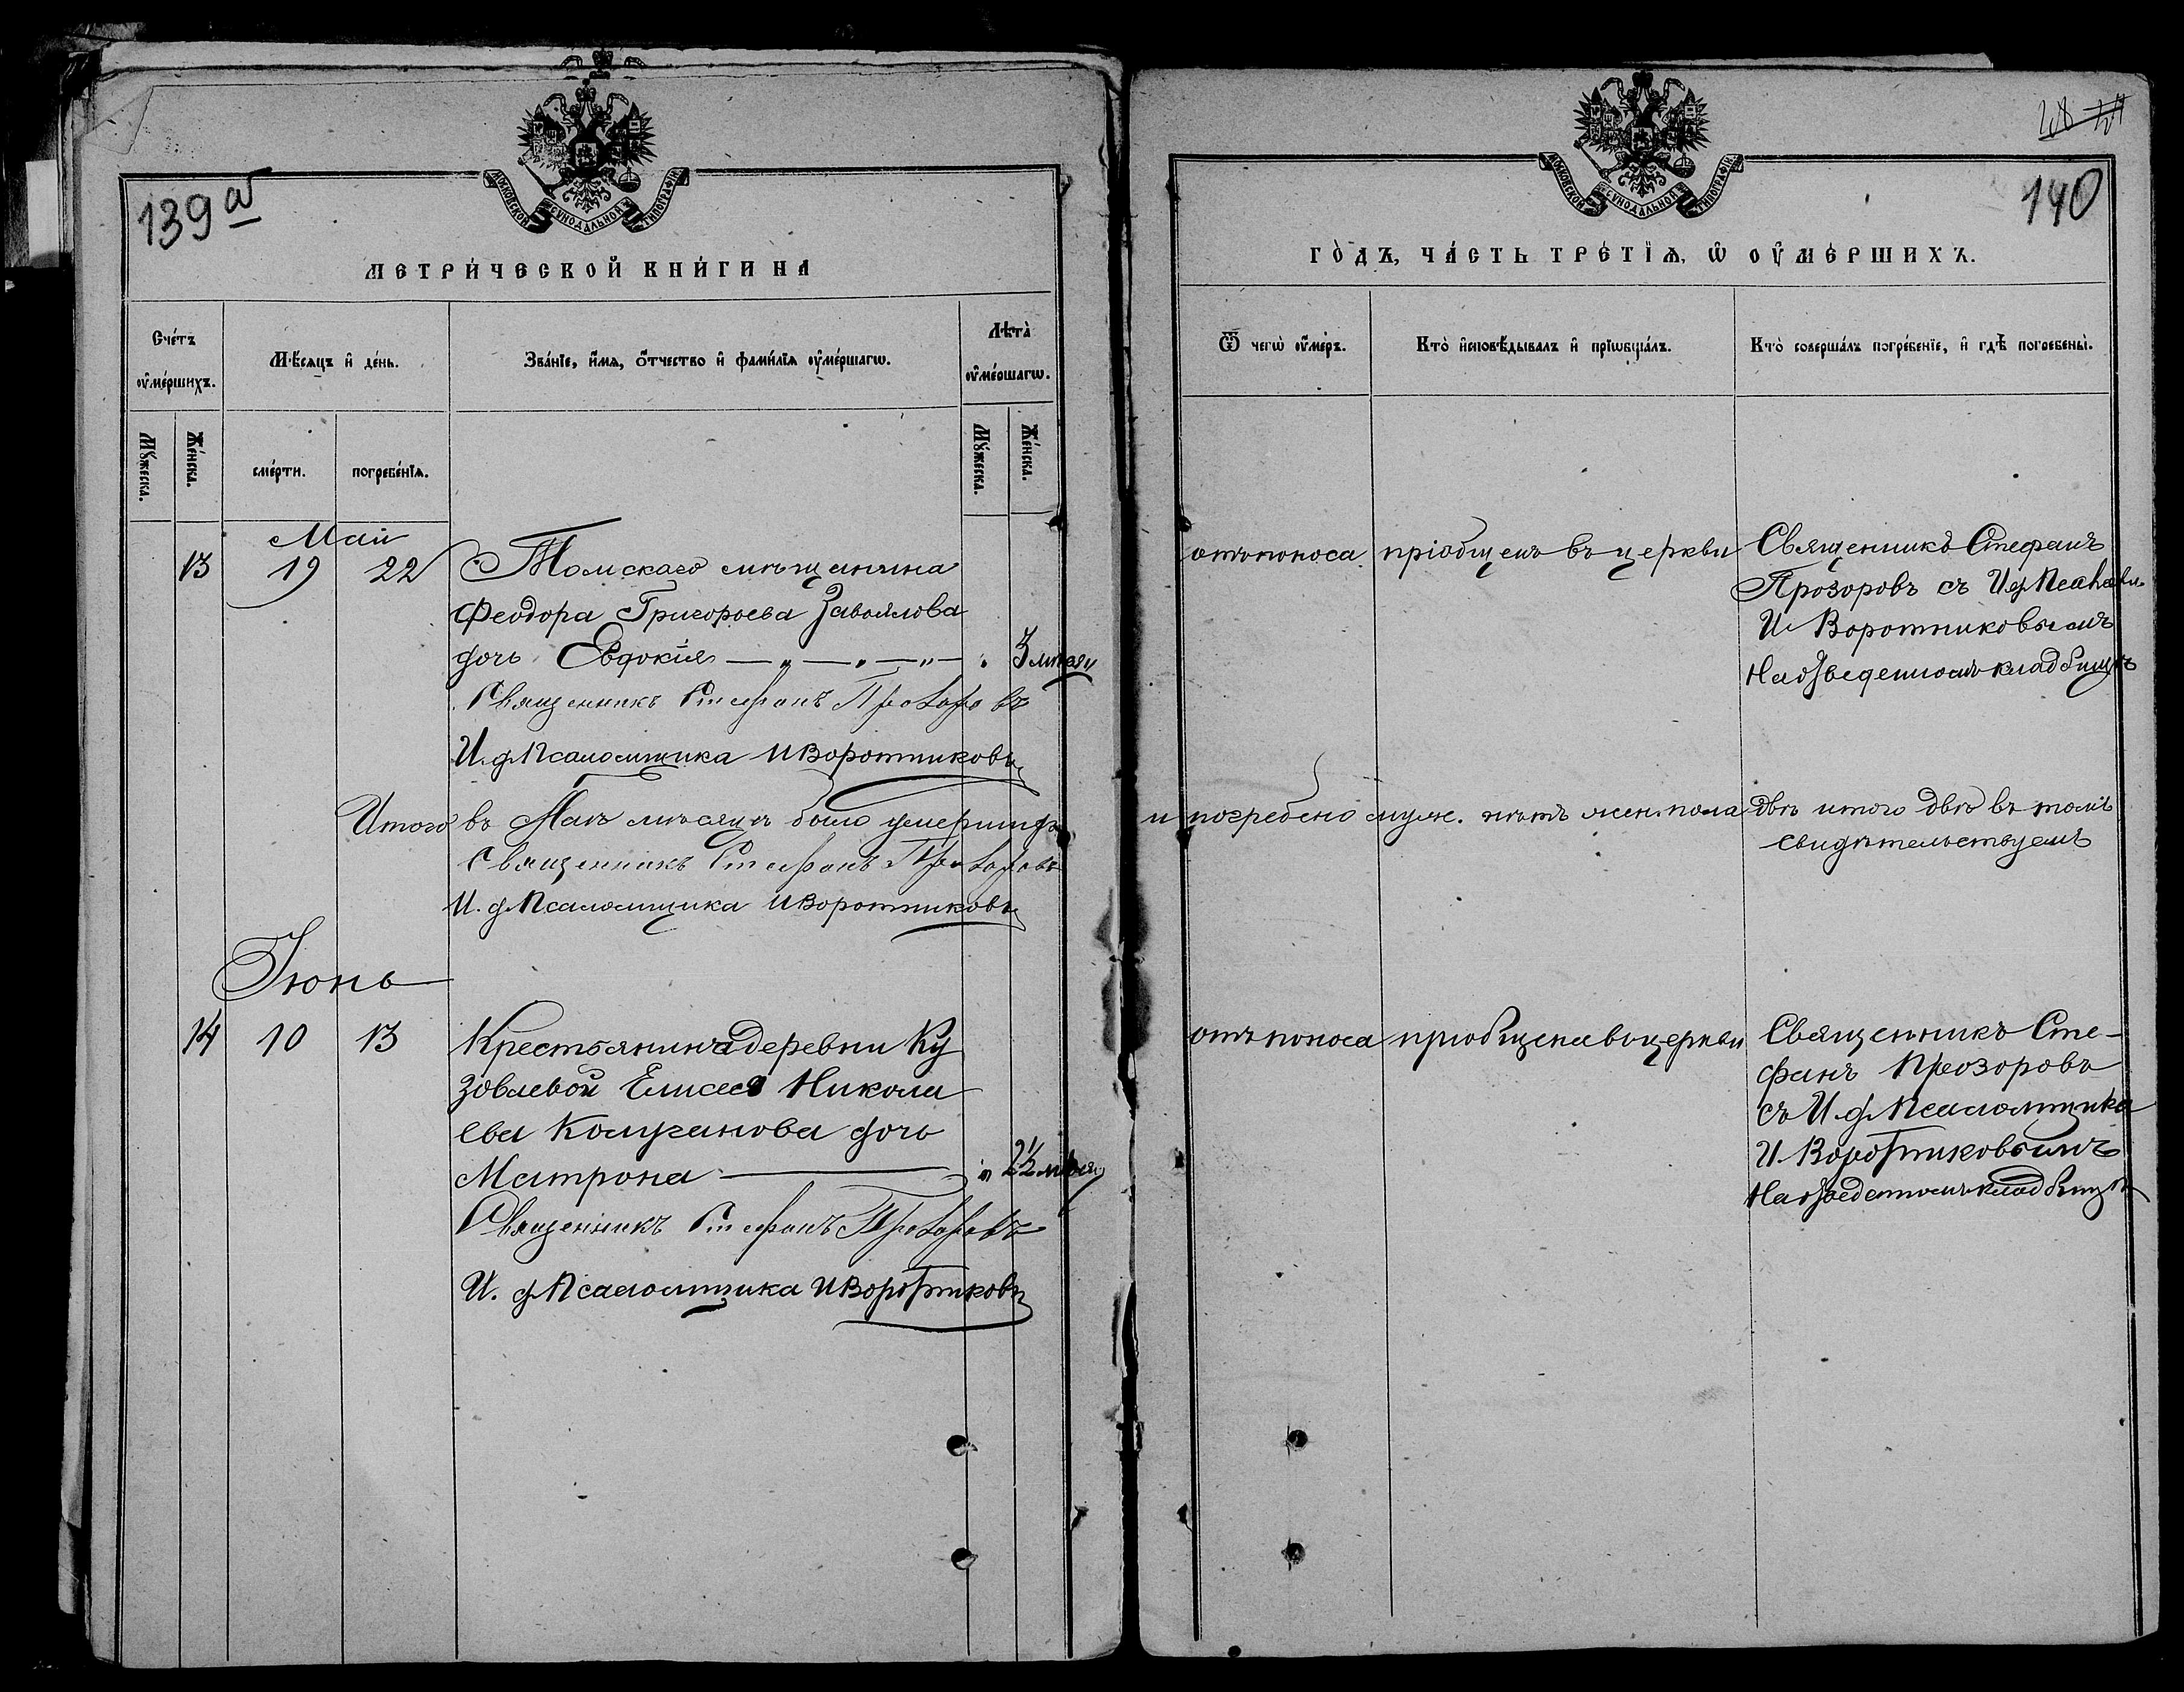 139а
МОСКОВСКОЙ СУНОДАЛЬНОЙ ТИПОГРАФІИ
МЕТРИ́ЧЕСКОЙ КНИ́ГИ НА
Сче́тъ ᲂу҆ме́ршихъ.
Мѣ́сяцъ и҆ де́нь.
Зва́нїе, и҆́мѧ, ѻ҆́тчество и҆ фами́лїѧ ᲂу҆ме́ршагѡ.
Лѣта̀ ᲂу҆ме́ршагѡ.
Мꙋ́жеска.
Же́нска.
сме́рти.
погребе́нїѧ.
Мꙋ́жеска.
Же́нска.
Май
13 19 22 Томскаго мѣщанина
Феодора Григорьева Завьялова
дочь Евдокія — „ — „ — „ — „ 3 мѣсяц
Священникъ Стефанъ Прозоровъ
И. д. Псаломщика И Воротниковъ
Итого въ Маѣ мѣсяцѣ было умершихъ
Священникъ Стефанъ Прозоровъ
И. д. Псаломщика И Воротниковъ
Іюнь
14 10 13 Крестьянина деревни Ку
зовлевой Елисея Никола
ева Колчанова дочь
Матрона — „ 2½ мѣсяц
Священникъ Стефанъ Прозоровъ
И. д. Псаломщика И Воротниковъ
140
МОСКОВСКОЙ СУНОДАЛЬНОЙ ТИПОГРАФІИ
ГО́ДЪ, ЧА́СТЬ ТРЕ́ТЇѦ, Ѡ҆ ОУ҆МЕ́РШИХЪ.
Ѿ чегѡ̀ ᲂу҆́меръ.
Кто̀ и҆сповѣ́дывалъ и҆ прїѡбща́лъ.
Кто̀ соверша́лъ погребе́нїе, и҆ гдѣ̀ погребены̀.
отъ поноса пріобщенъ въ церкви Священникъ Стефанъ
Прозоровъ съ И д Псалом
И Воротниковымъ
На отведенномъ кладбищѣ
и погребено муж. нѣтъ жен. пола двѣ итого двѣ въ томъ
свидѣтельствуемъ
отъ поноса пріобщена въ церкви Священникъ Сте-
фанъ Прозоровъ
съ И. д. Псаломщика
И. Воротниковымъ
На отведенномъ кладбищѣ